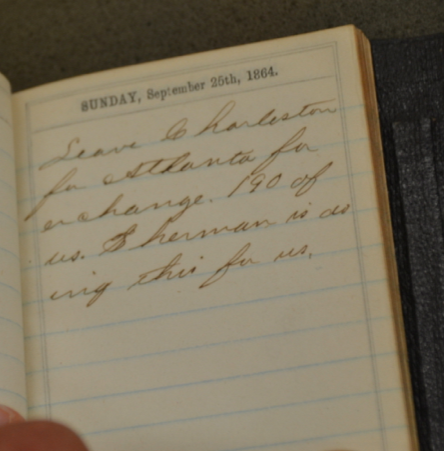 SUNDAY, September 25th, 1864.
Leave Charleston
for Atlanta for
exchange. 190 of
us. Sherman is do
ing this for us.